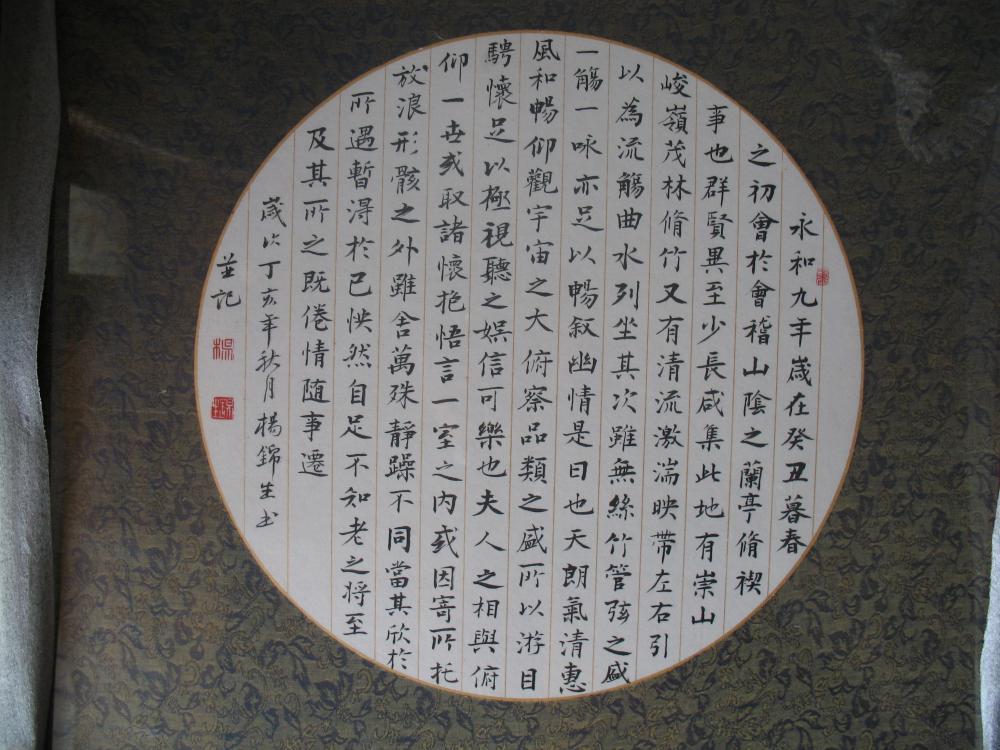 永和九年歲在癸丑暮春
之初會於會稽山陰之蘭亭脩禊
事也群賢異至少長咸集此地有崇山
峻嶺茂林脩竹又有清流激湍映帶左右引
以為流觴曲水列坐其次雖無絲竹管弦之盛
一觴一咏亦足以暢叙幽情是日也天朗氣清惠
風和暢仰觀宇宙之大俯察品類之盛所以游目
騁懷足以極視聽之娱信可樂也夫人之相與俯
仰一世或取諸懷抱悟言一室之内或因寄所托
放浪形骸之外雖舍萬殊靜躁不同當其欣於
所遇暫得於己怏然自足不知老之将至
及其所之既倦情随事遷
歲次丁亥年秋月楊錦生书
並記